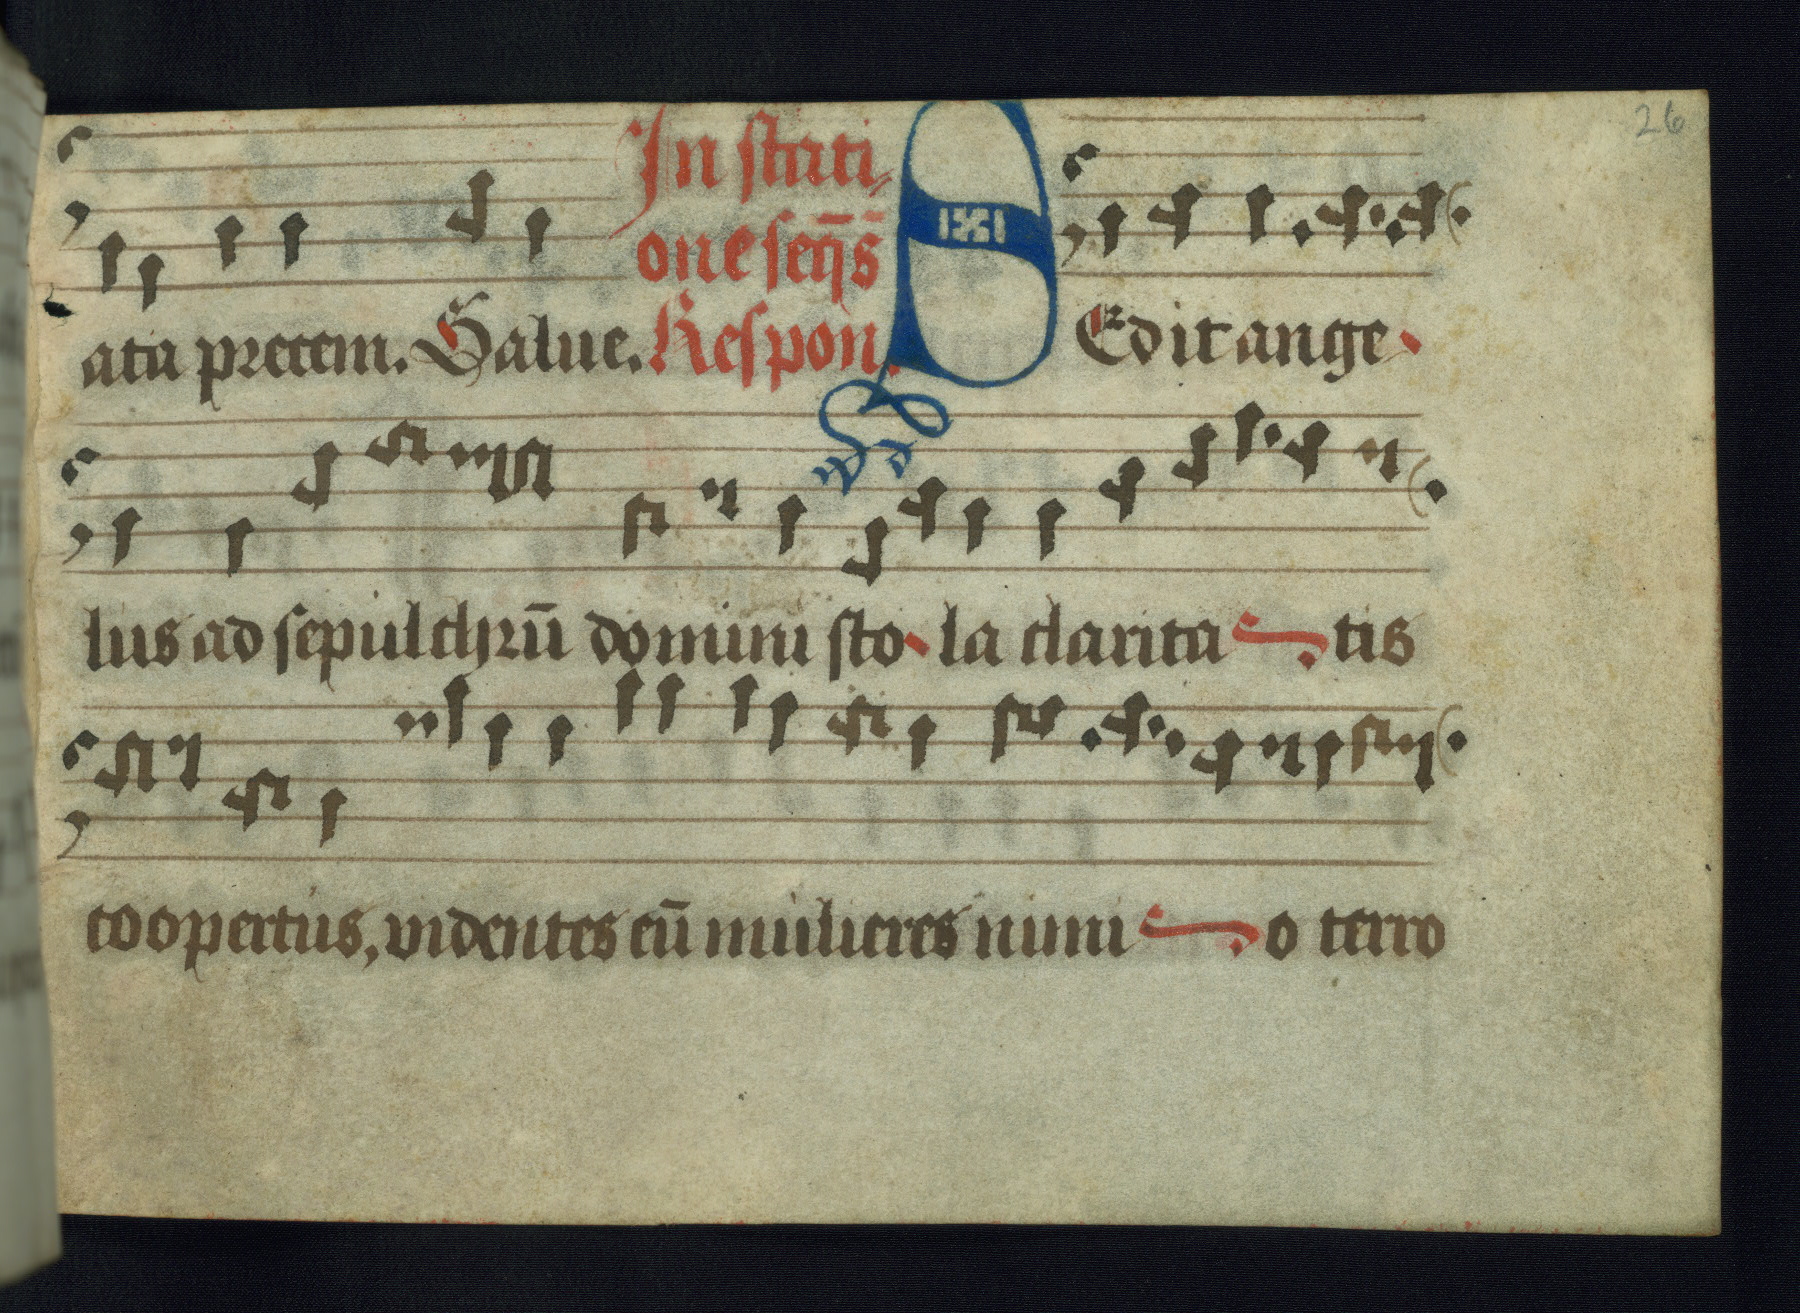 26
In stati⸗
one seqn̄s
ata precem. Salue. Respon.
Sedit ange
lus ad sepulchrū domini sto la clarita tis
coopertus, videntes eū mulieres nimi o terro